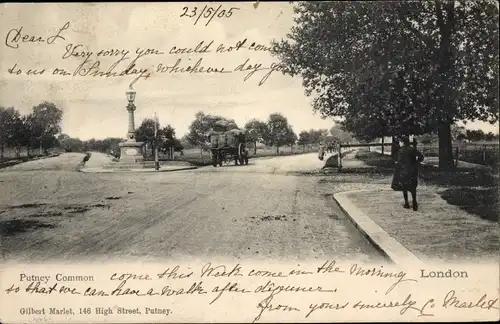 23/5/05
Dear L
Very sorry you could not come
to us on Sunday whichever day you
Putney Common
London
come this Week come in the morning
so that we can have a walk after dinner.
from yours sincerely G Marlet
Gilbert Marlet, 146 High Street, Putney.